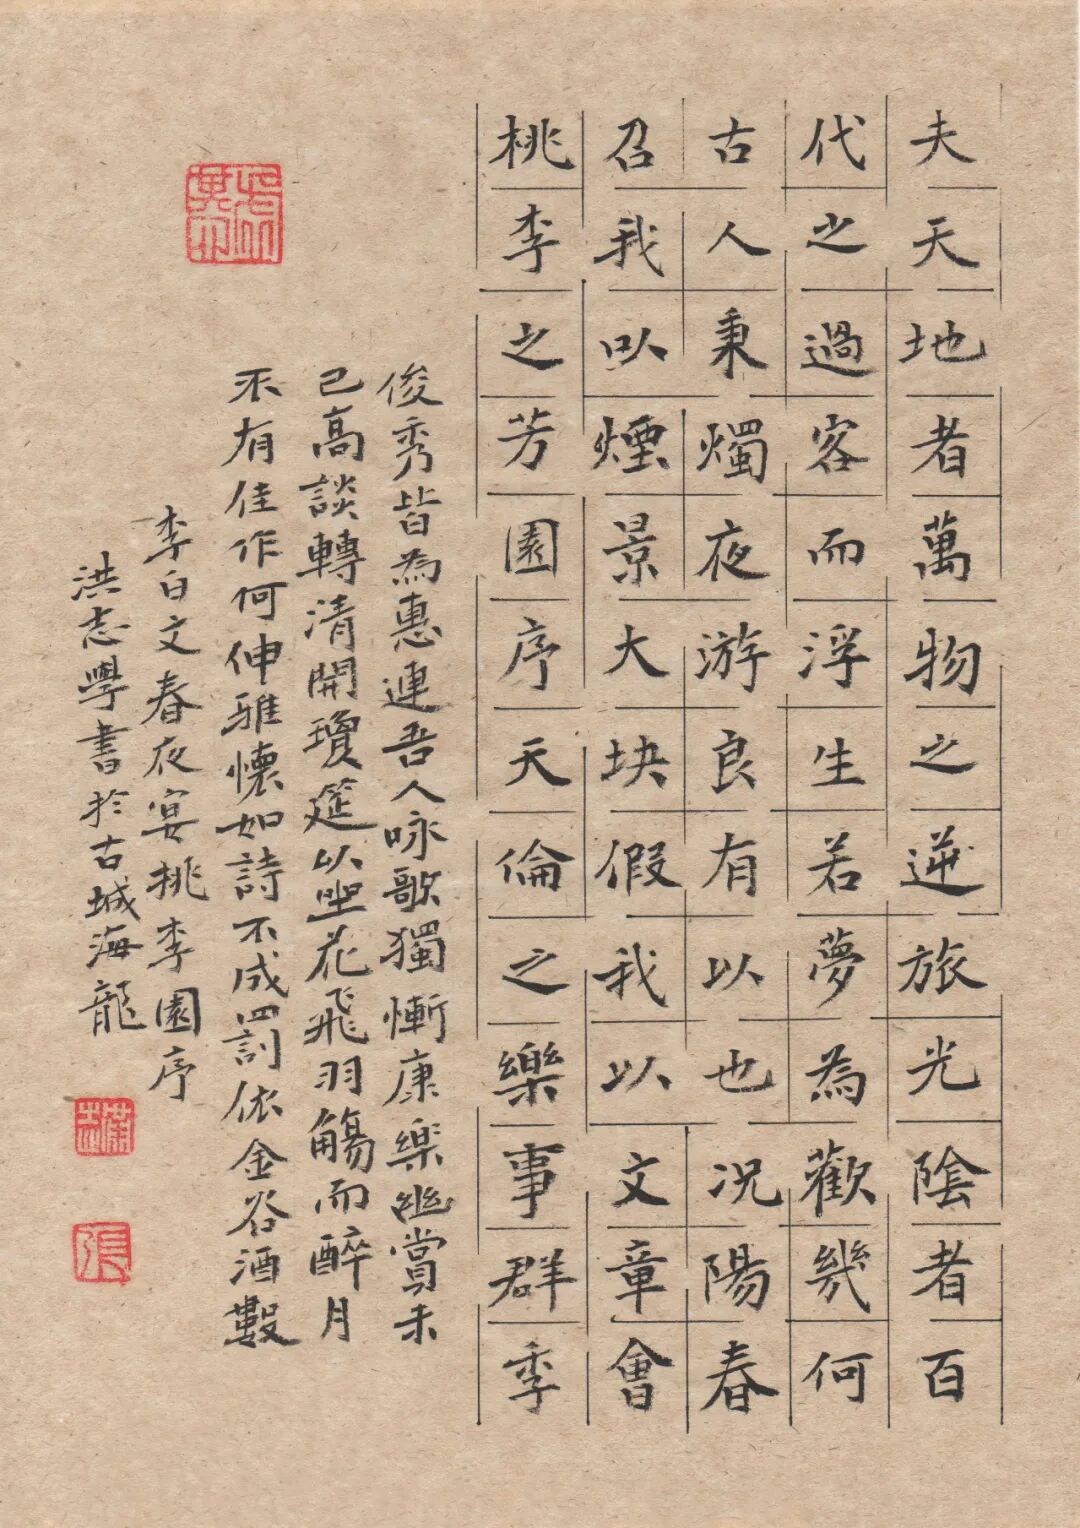 夫天地者萬物之逆旅光陰者百
代之過客而浮生若夢為歡幾何
古人秉燭夜游良有以也况陽春
召我以煙景大块假我以文章會
桃李之芳園序天倫之樂事群季
俊秀皆為惠連吾人咏歌獨慚康樂幽賞未
已高談轉清開瓊筵以坐花飛羽觴而醉月
不有佳作何伸雅懷如詩不成罰依金谷酒數
李白文春夜宴桃李園序
洪志學書於古城海龍
張